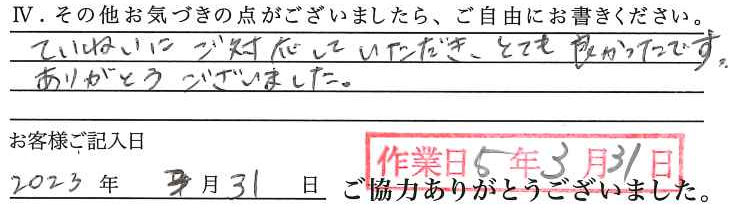 Ⅳ．その他お気づきの点がございましたら、ご自由にお書きください。
ていねいにご対応していただき、とても良かったです。
ありがとうございました。
お客様ご記入日
作業日 5年3月31日
2023年 3月31日 ご協力ありがとうございました。